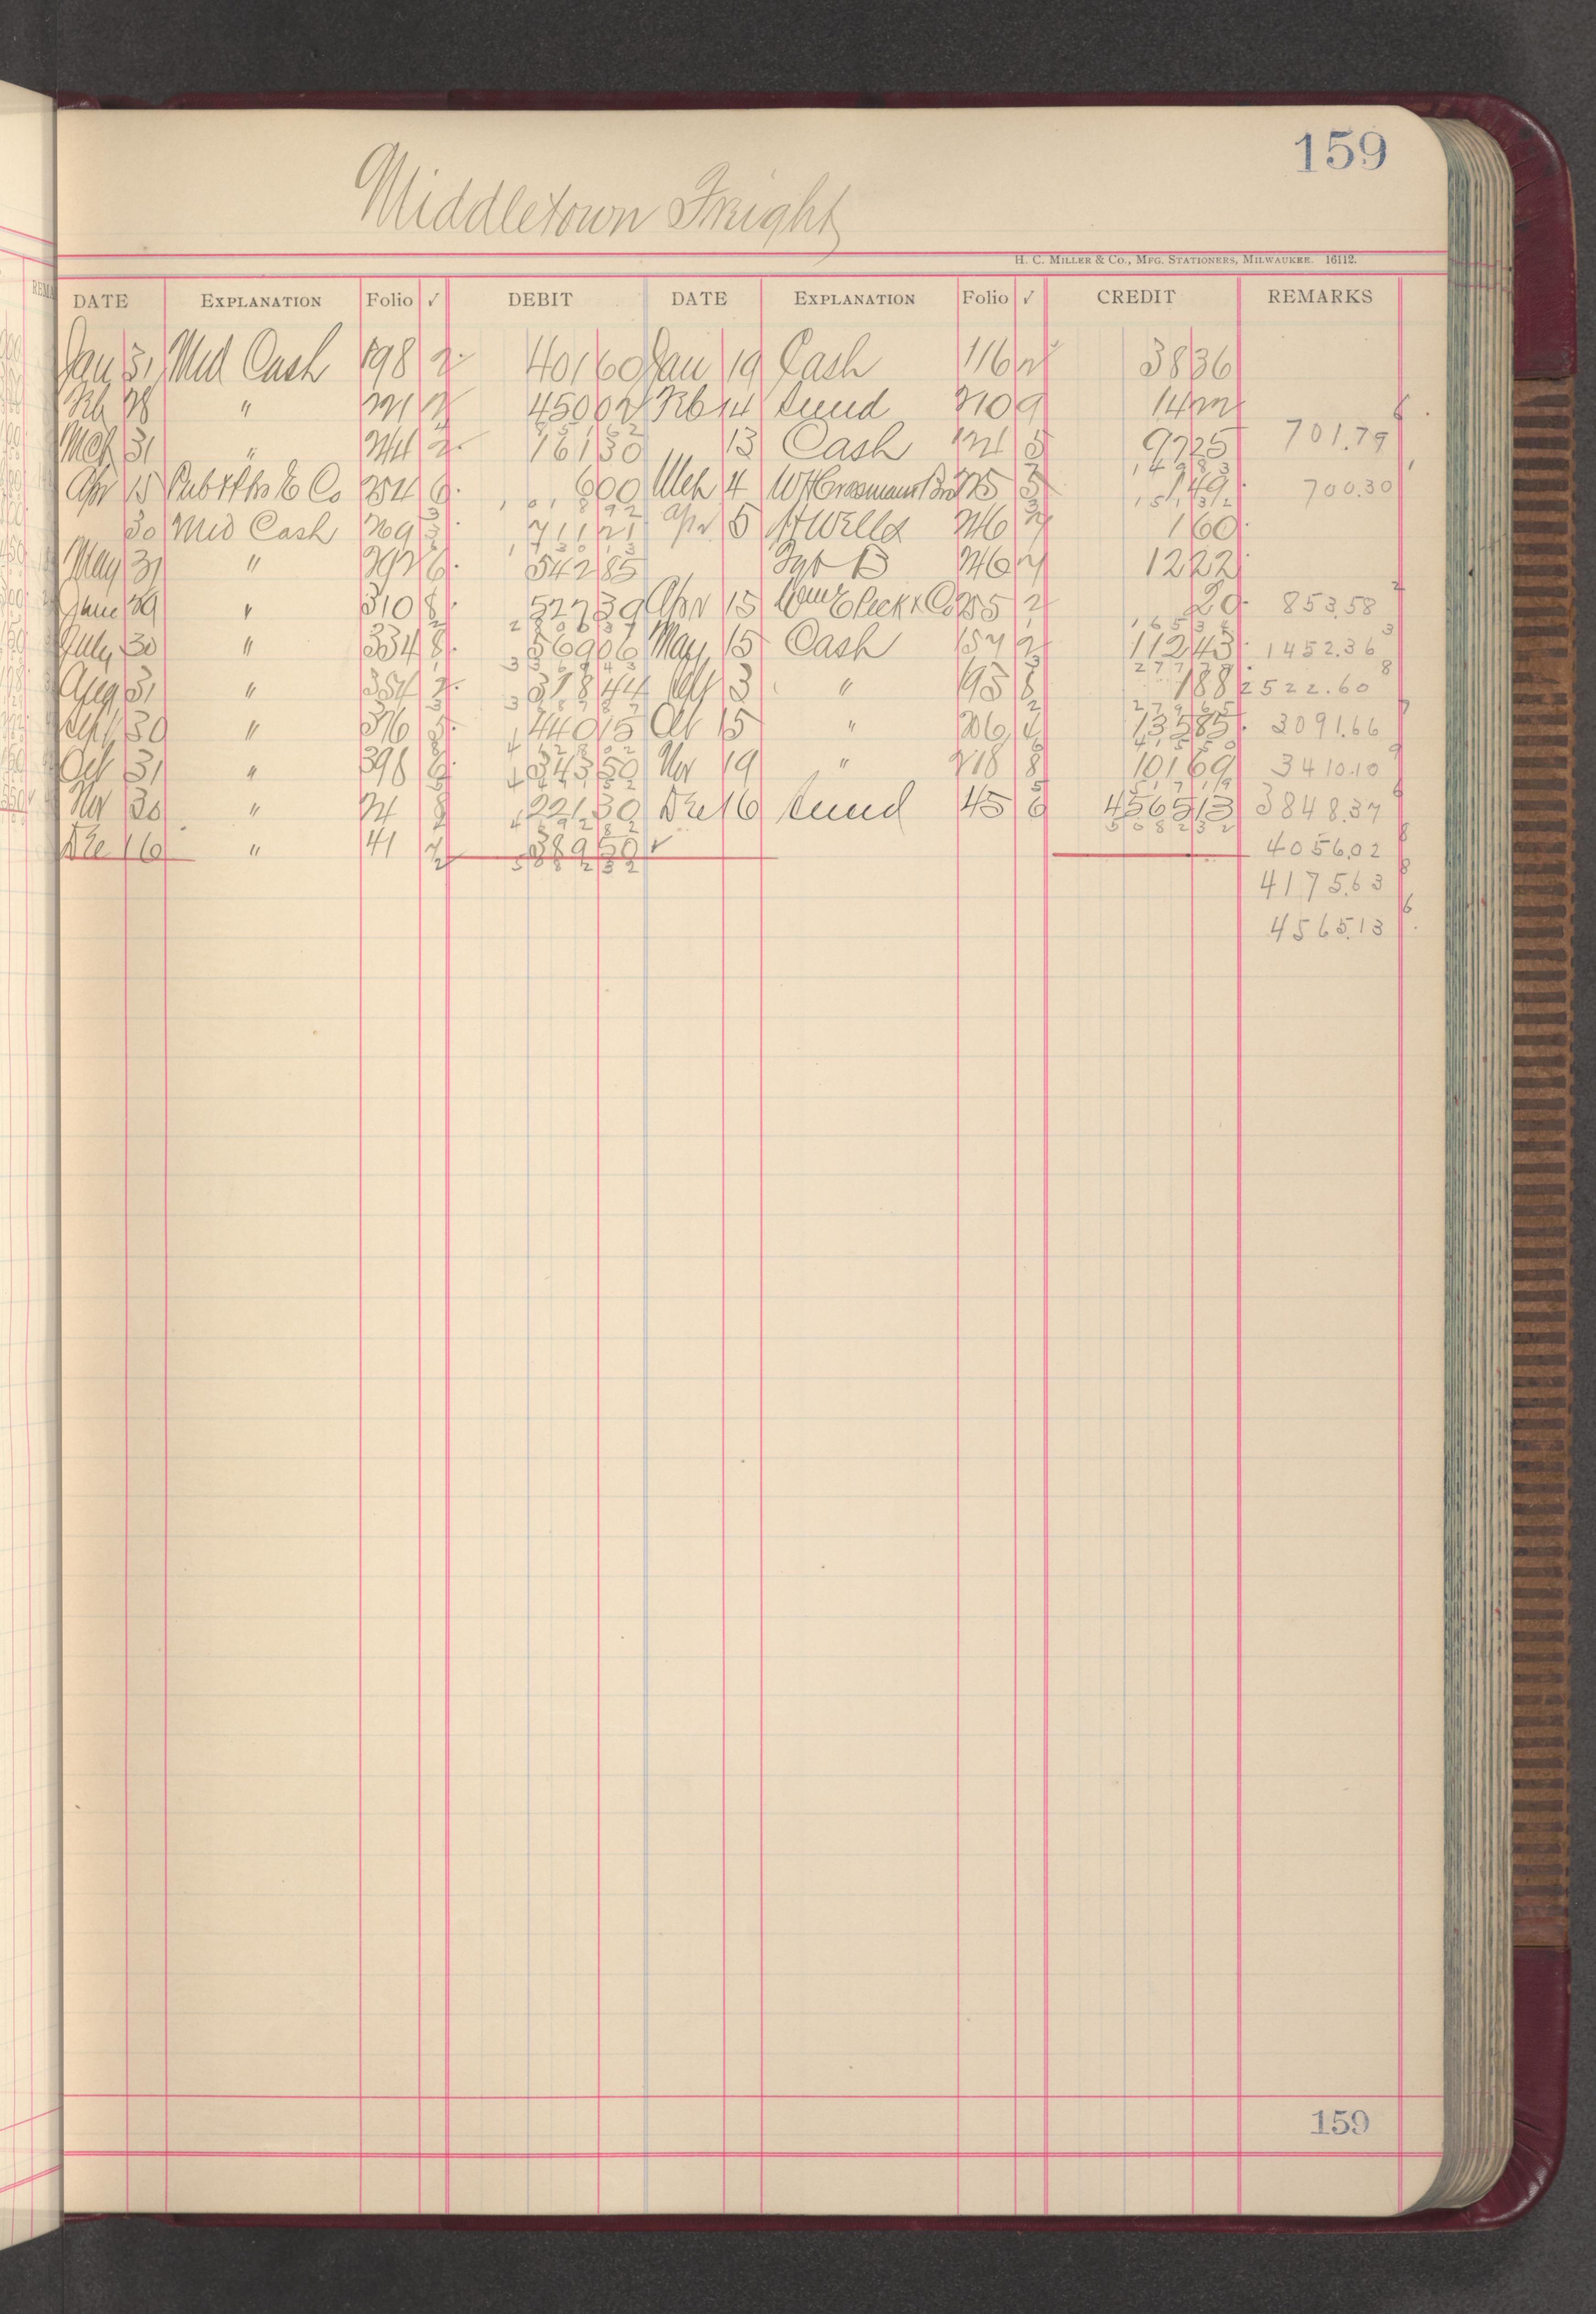 159
Middletown Freight
H. C. MILLER & CO., MFG. STATIONERS, MILWAUKEE. 16112.
DATE EXPLANATION Folio ✓ DEBIT DATE EXPLANATION Folio ✓ CREDIT REMARKS
Jan 31 Mid Cash 198 2 401 60 Jan 19 Cash 116 38 36
Feb 28 " 221 450 02 Feb 14 Sund 210 9 14 22
Mch 31 " 244 2 161 30 13 Cash 121 5 97 25 701.79
Apr 15 254 6 6 00 Mch 4 W H Crossman & Bro 225 3 1 49 700.30
30 Mid Cash 269 3 711 21 Apr 5 A Wells 246 1 60
May 31 " 292 6 542 85 246 12 22
June 29 " 310 8 527 39 Apr 15 Wm E Peck & Co 255 2 20 853.58
July 30 " 334 8 569 06 May 15 Cash 157 2 112 43 1452.36
Aug 31 " 354 2 318 44 Sept 3 " 195 8 1 88 2522.60
Sept 30 " 376 5 440 15 Oct 15 " 206 4 135 85 3091.66
Oct 31 " 396 6 343 50 Nov 19 " 218 8 101 69 3410.10
Nov 30 " 24 8 221 30 Dec 16 Sund 45 6 4565 13 3848.37
Dec 16 " 41 389 50 ✓ 4056.02
4175.63
4565.13
159